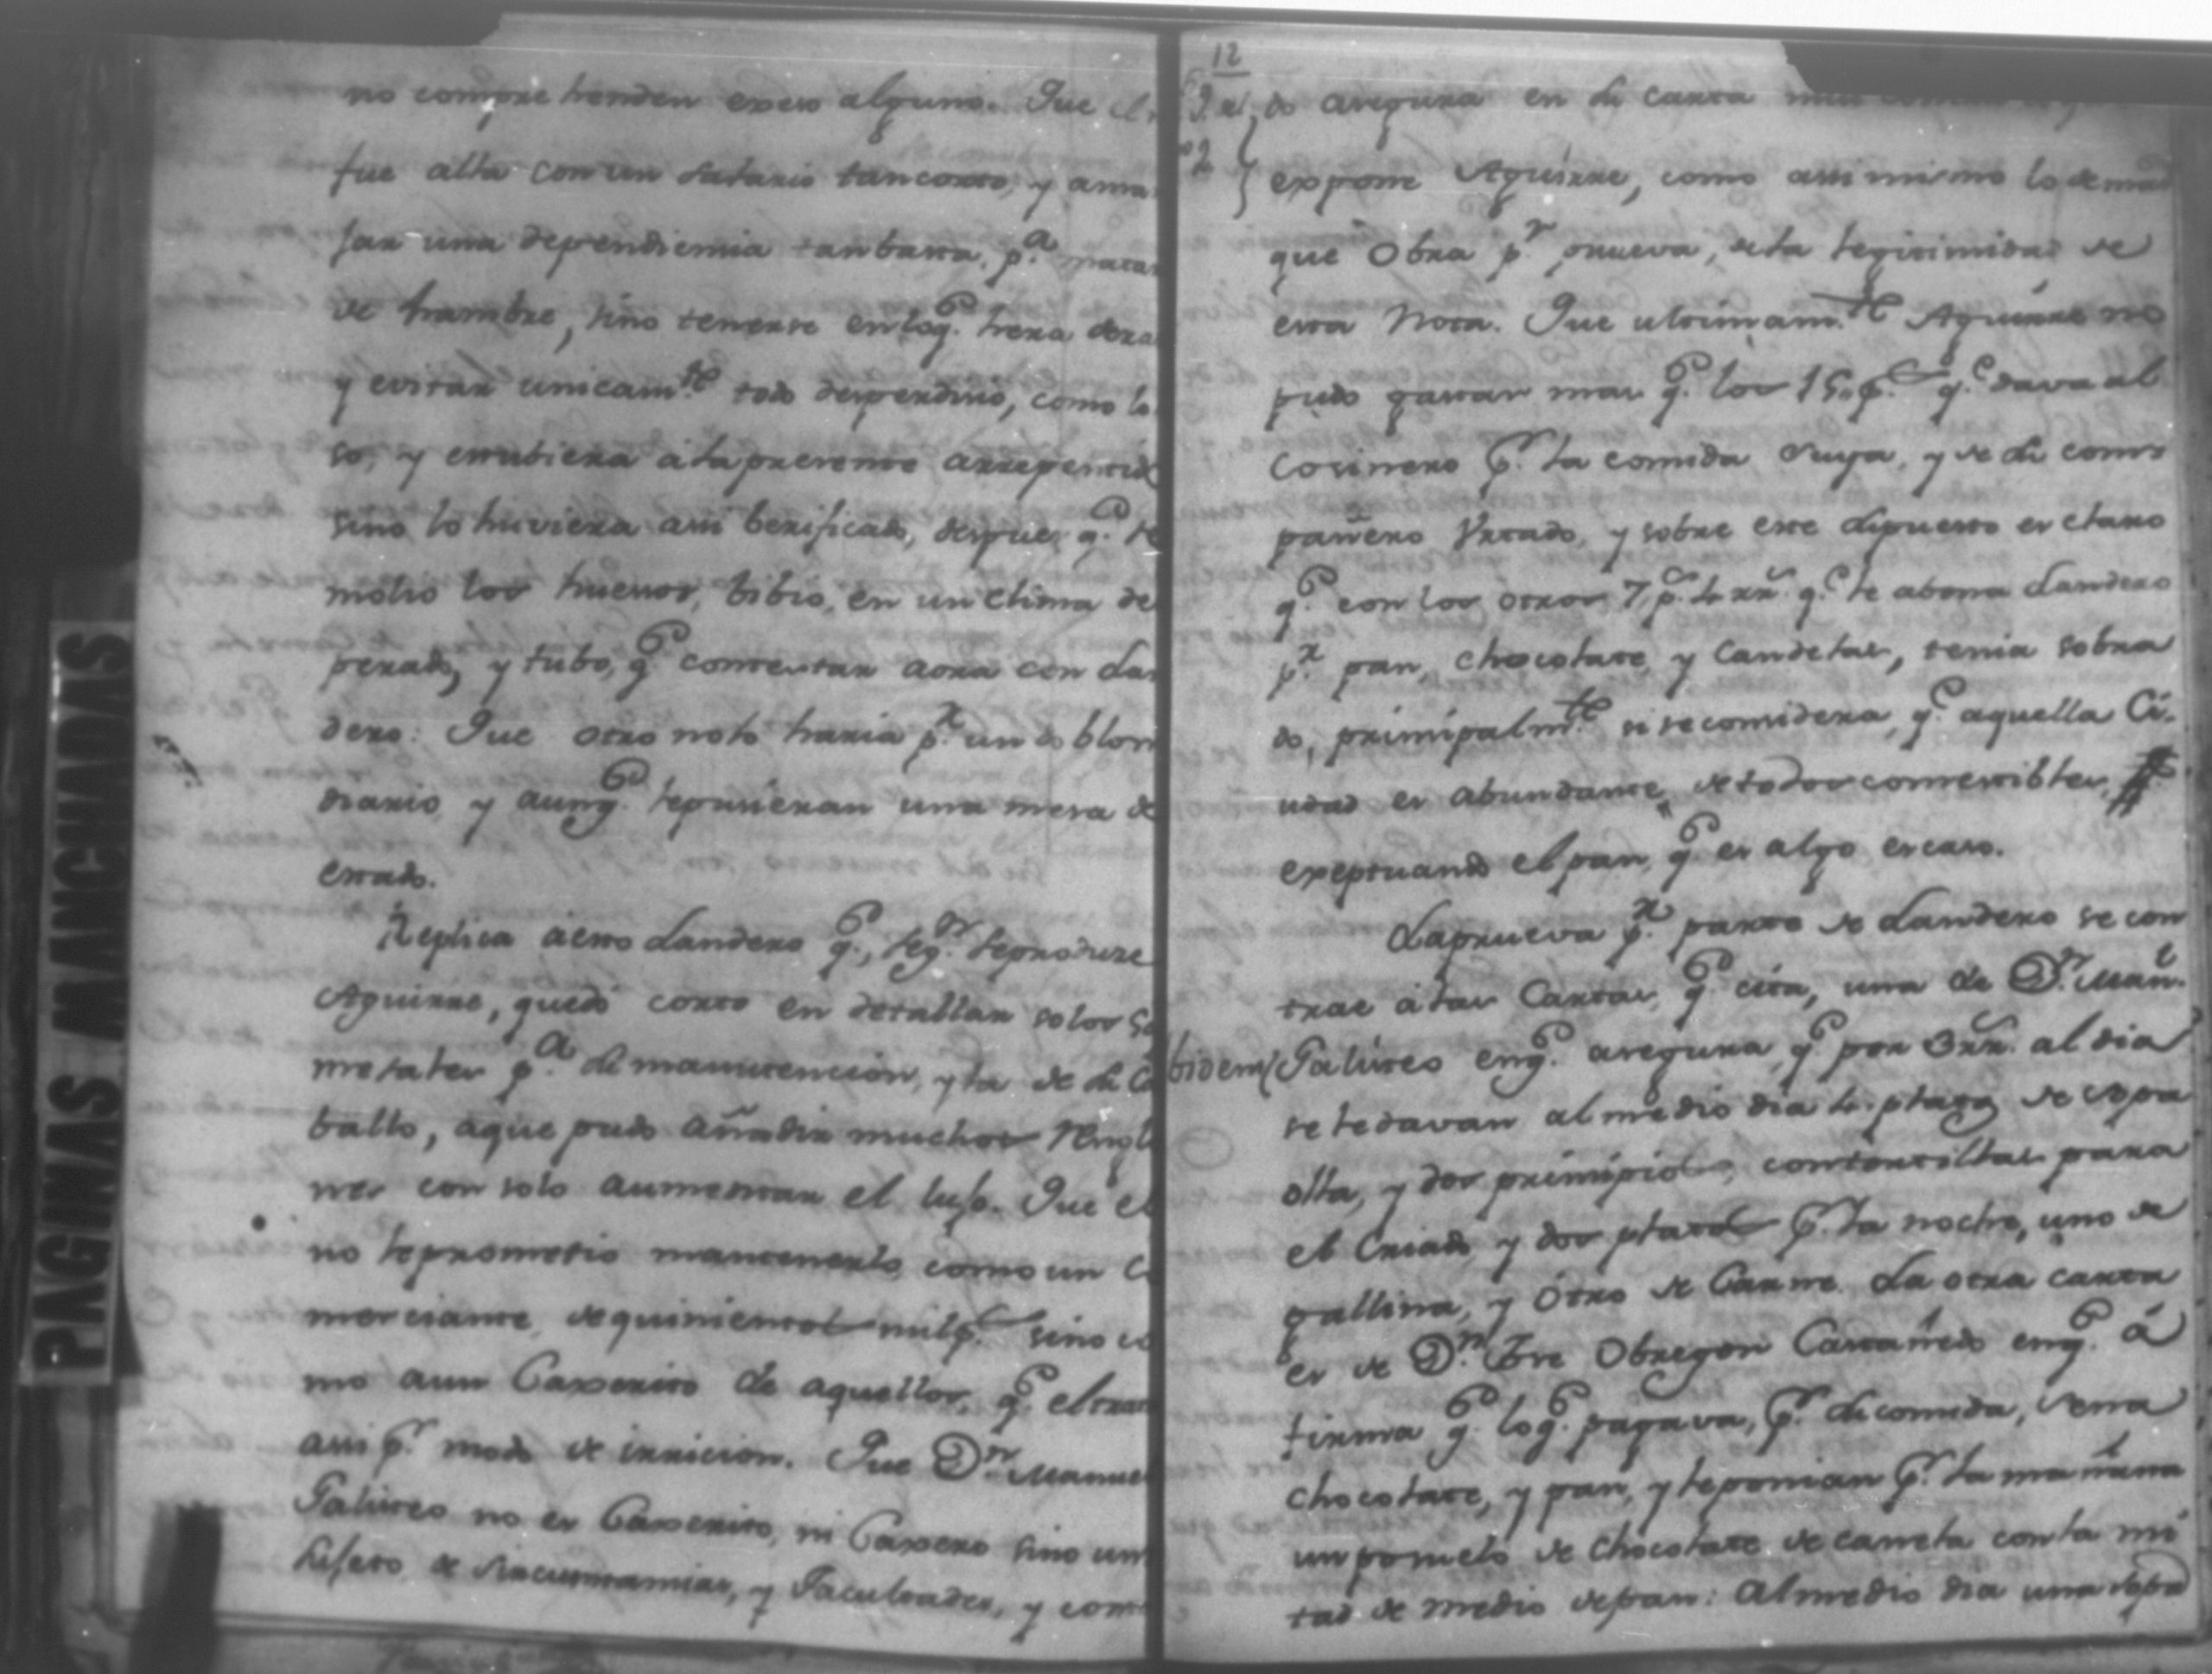 no comprehenden exeso alguno. Que el
fue alla con un salario tan corto, y ama
sar una dependiencia tan basta, p.ª matar
de hambre, sino tenerse en lo q.e hera
y evitar unicam.te todo desperdicio, como lo
so, y estubiera a la presente arrepentid
sino lo huviera assi berificado, despues q.e se
molio los huesos, bibio, en un clima de
perado, y tubo, q.e contestar aora con Lan
dero: Que otro no lo haria p.r un doblon
diario, y aunq.e le pusieran una mesa de
estado.
Replica a esto Landero q.e, seg.n se produze
Aguirre, quedó corto en detallar solos
mesales p.ª su manutencion, y la de su Ca
ballo, aque pudo añadir muchos renglo
nes con solo aumentar el luso. Que el
no le prometio mantenerlo, como un Co
merciante, de quinientos mil p.s sino co
mo aun Caxonero de aquellos, q.e el trae
assi p.r modo de irricion. Que D.n Manuel
Galirzo no es Caxonero, ni Caxero sino un
sujeto de sircunstancias, y Facultades, y com
PAGINAS MANCHADAS
12
do asegura en su carta
expone Aguirre, como assi mismo lo demas
que Obra p.r prueva, de la legitimidad de
esta Nota. Que ultimam.te Aguirre no
pudo gastar mas q.e los 15 p.s q.e dava al
cosinero p.r la comida suya, y de su com
pañero Urtado, y sobre este supuesto es claro
q.e con los otros 7 p.s 4 rr.s q.e le abona Landero
p.r pan, chocolate, y candelas, tenia sobra
do, prinsipalm.te si se considera, q.e aquella Ci-
udad es abundante de todos comestibles,
exeptuando el pan, q.e es algo escaso.
La prueva p.r parte de Landero se con
trae a las Cartas, q.e cita, una de D.n Man.l
bidem Galirzo en q.e asegura, q.e por 3 rr.s al dia
se le davan al medio dia 4 platos de sopa
olla, y dos prinsipios, con tortillas para
el Criado y dos platos p.r la noche, uno de
gallina, y otro de Carne. La otra carta
es de D.n Jose Obregon Castañedo en q.e a
firma q.e lo q.e pagava, p.r su comida, Cena
chocolate, y pan, y le ponian p.r la mañana
un posuelo de chocolate de canela con la mi
tad de medio de pan: Al medio dia una sopa